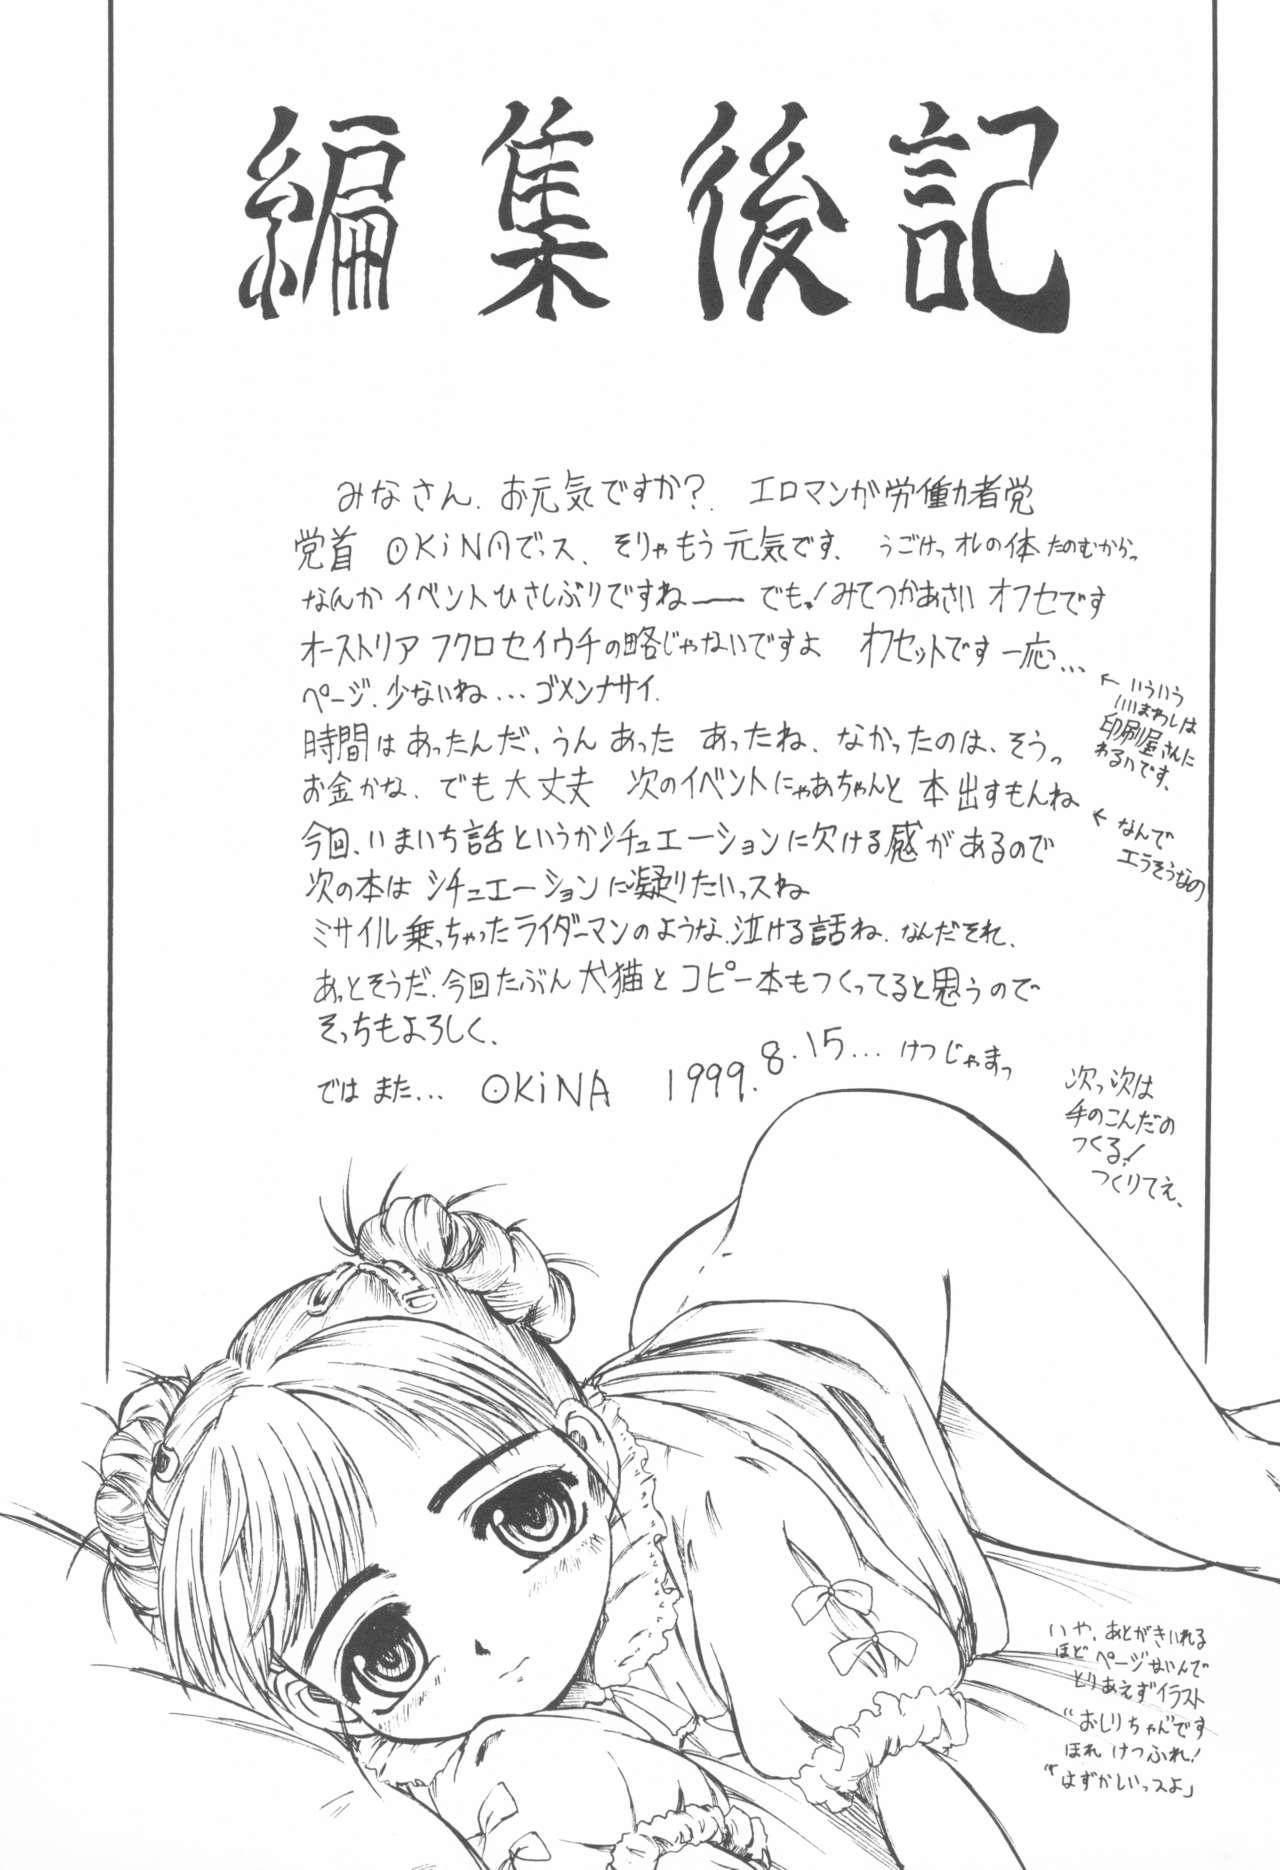 編集後記
みなさん、お元気ですか? エロマンガ労働力者党
党首 OKiNAでっス、そりゃもう元気です、うごけっオレの体たのむからっ
なんかイベントひさしぶりですねー でもっ!みてつかあさい オフセです
オーストリアフクロセイウチの略じゃないですよ オフセットです一応…
ページ、少ないね…ゴメンナサイ、
時間はあったんだ、うんあった あったね、なかったのは、そうっ
お金かな、でも大丈夫 次のイベントにゃあちゃんと本出すもんね
今回、いまいち話というかシチュエーションに欠ける感があるので
次の本はシチュエーションに凝りたいっスね
ミサイル乗っちゃったライダーマンのような、泣ける話ね、なんだそれ、
あっとそうだ、今回たぶん犬猫とコピー本もつくってると思うので
そっちもよろしく、
ではまた… OKiNA 1999.8.15…けつじゃまっ
←いういう
いいまわしは
印刷屋さんに
わるいです、
←なんで
エラそうなの
次っ次は
手のこんだの
つくる!
つくりてえ、
いや、あとがきいれる
ほどページないんで
とりあえずイラスト
"おしりちゃん"です
ほれ けつふれ!
"はずかしいっスよ」